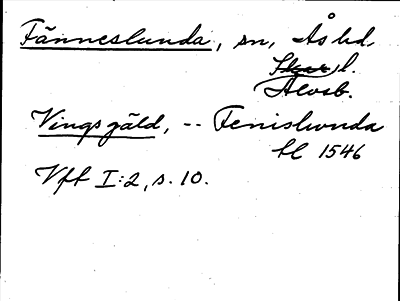 Fänneslunda, sn, Ås hd,
Skar. l.
Älvsb.
Vings gäld, -- Fenislwnda
hl 1546
Vft I:2, s. 10.